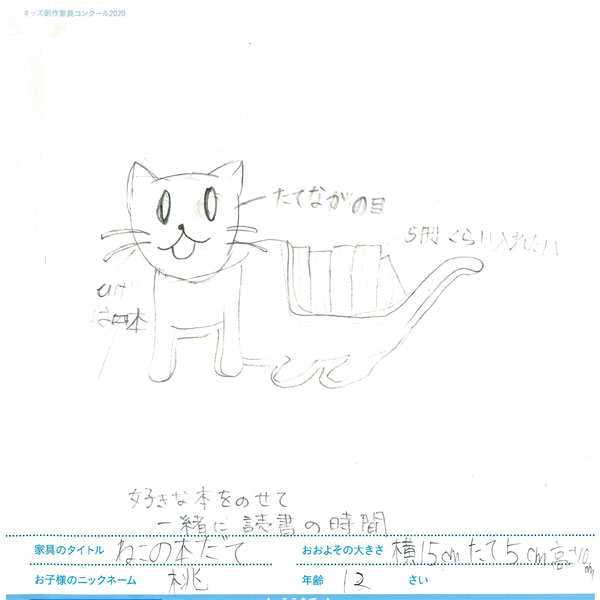 キッズ創作家具コンクール2020
たてながの目
5冊くらい入れたい
ひげ
は四本
好きな本をのせて
一緒に読書の時間
家具のタイトル ねこの本だて
おおよその大きさ 横15cmたて5cm高さ10cm
お子様のニックネーム 桃
年齢 12 さい